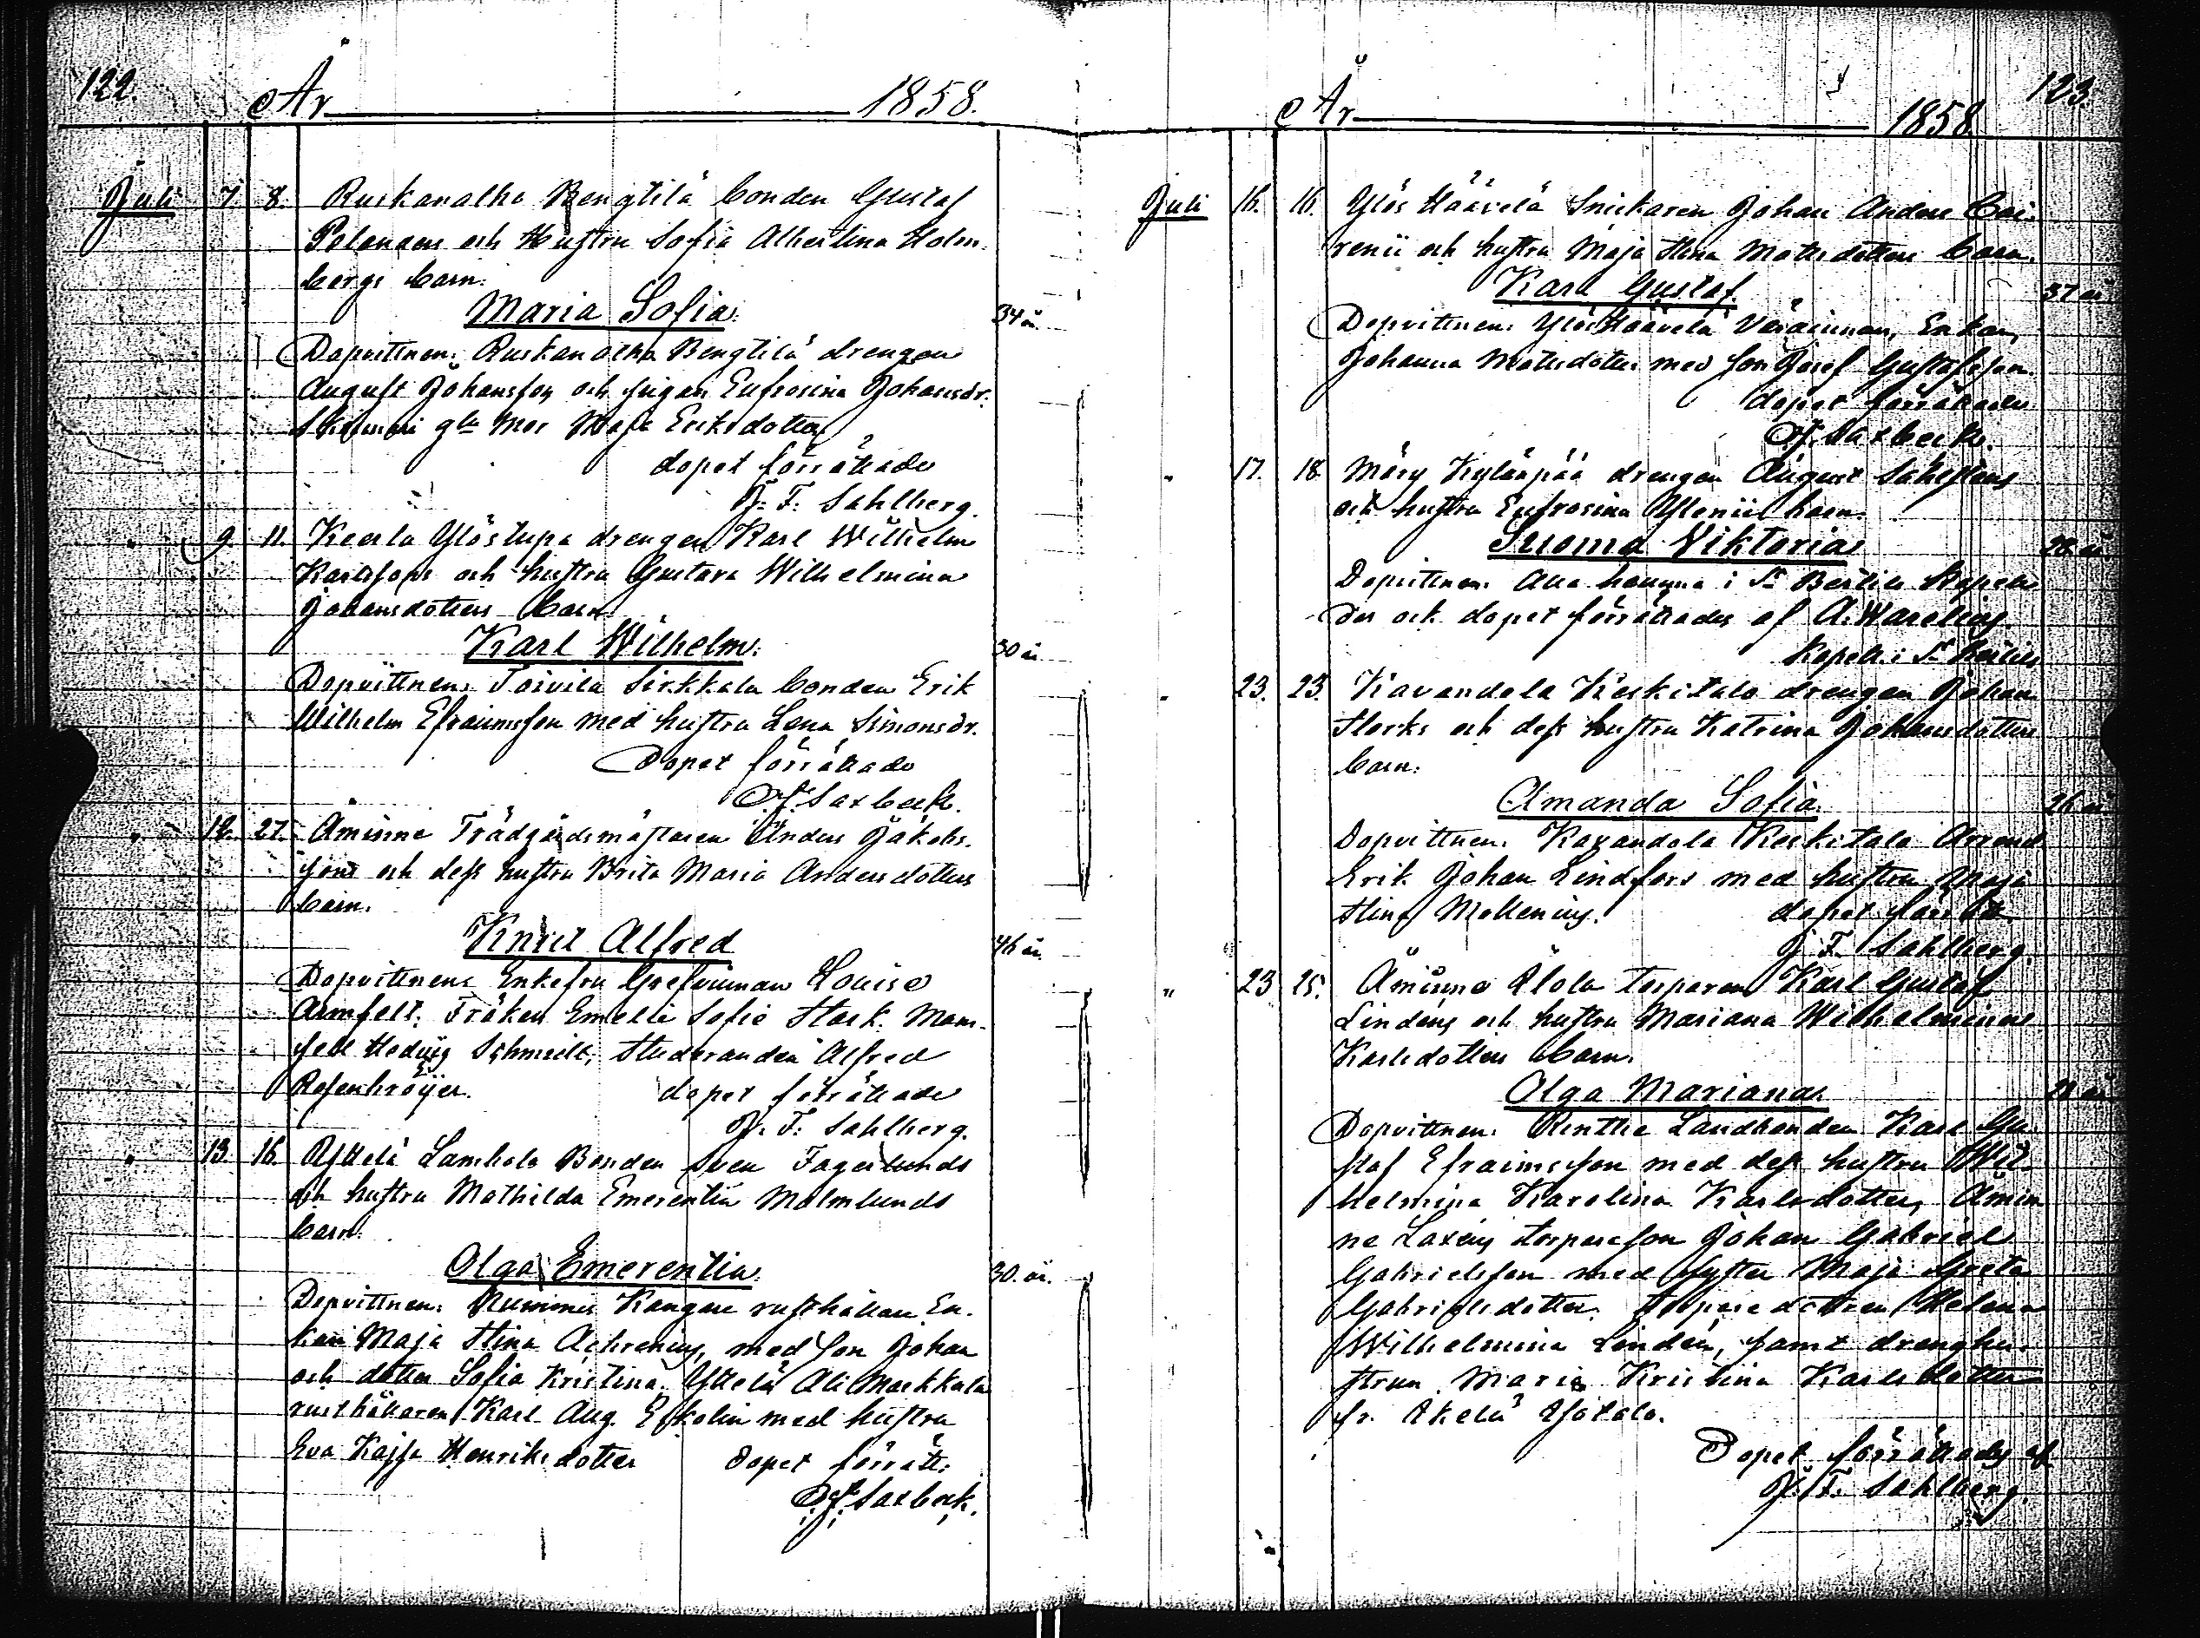 122.
År 1858.
Juli 7. 8. Ruskanalho Bengtilä bonden Gustaf
Polanders och Hustru Sofia Albertina Holm-
bergs barn.
Maria Sofia. 34 år
Dopvittnen: Ruskanalho Bengtilä drengen
August Johansson och pigan Eufrosina Johansdr.
gla mor Maja Eriksdotter
dopet förrättade
J. F. Sahlberg.
" 9. 11. Keerla Ylöstupa drengen Karl Wilhelm
Karlssons och hustru Gustava Wilhelmina
Johansdotters barn.
Karl Wilhelm. 30 år
Dopvittnen: Toivila Sirkkala bonden Erik
Wilhelm Efraimsson med hustru Lena Simonsdr.
Dopet förrättade
J. Saxbeck.
" 12. 27. Åminne Trädgårdsmästaren Anders Jakobs-
sons och dess hustru Brita Maria Andersdotters
barn.
Knut Alfred 46 år
Dopvittnen: Enkefru Grefvinnan Louise
Armfelt, Fröken Emelie Sofie Stark. Mam-
sell Hedvig Schmidt, Studeranden Alfred
Rosenbröijer. dopet förrättade
J. F. Sahlberg.
" 13. 16. Yttelä Lamhola Bonden Sven Fagerlunds
och hustru Mathilda Emerentia Malmlunds
barn.
Olga Emerentia. 30. år.
Dopvittnen: Kangare rusthållare En-
kan Maja Stina Achrenius, med son Johan
och dotter Sofia Kristina. Yttelä Ali Markkula
rusthållaren Karl Aug. Eskolin med hustru
Eva Kajsa Henriksdotter Dopet förrätt:
J. Saxbeck.
123.
År 1858
Juli 16. 16. Ylös Häävelä Snickaren Johan Anders Cai-
renii och hustru Maja Stina Mattsdotters barn.
Karl Gustaf. 37 år
Dopvittnen: Ylös Häävelä Värdinnan, Enkan,
Johanna Mattsdotter med son Josef Gustafsson.
dopet förrättades
J. Saxbeck.
" 17. 18. Märy Kylänpää drengen August Sahlstens
och hustru Eufrosina Ylenii barn.
Suoma Viktoria 28 år
Dopvittnen: Alla hemma i St Bertils Kapell
der och dopet förrättades af A. Warelius
Kapell. i St Bertils
" 23. 23. Kavandola Keskitalo drengen Johan
Storks och dess hustru Katrina Johansdotters
barn.
Amanda Sofia. 26 år
Dopvittnen: Kavandola Keskitalo Arrend.
Erik Johan Lindfors med hustru Maja
Stina Mellenius. dopet förrätt
J. F. Sahlberg.
" 23 25. Åminne Alola torparen Karl Gustaf
Lindens och hustru Mariana Wilhelmina
Karlsdotters barn.
Olga Mariana. 28 år
Dopvittnen: Rentto Landbonden Karl Gu-
staf Efraimsson med dess hustru Wil-
helmina Karolina Karlsdotter, Åmin-
ne Laxens torpareson Johan Gabriel
Gabrielsson med syster Maja Greta
Gabrielsdotter. torparedottren Helena
Wilhelmina Linden, samt drenghu-
strun Maria Kristina Karlsdotter
fr.
Dopet förrättades af
J. F. Sahlberg.